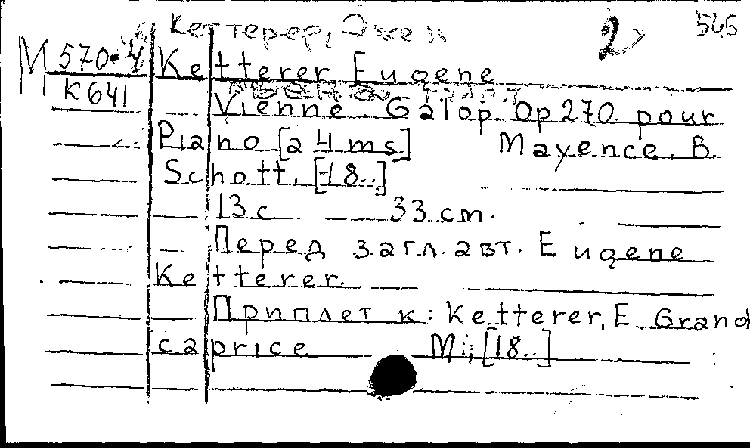 Кеттерер, Эжен 2 545
М 570-4 Ketterer Eugene
К641
Vienne. Galop. Op 270 pour
Piano [a 4 ms] Mayence, B.
Schott, [18..]
13 с 33 cm.
Перед загл. авт. Eugene
Ketterer
Приплет к: Ketterer, E. Grand
caprice M., [18..]